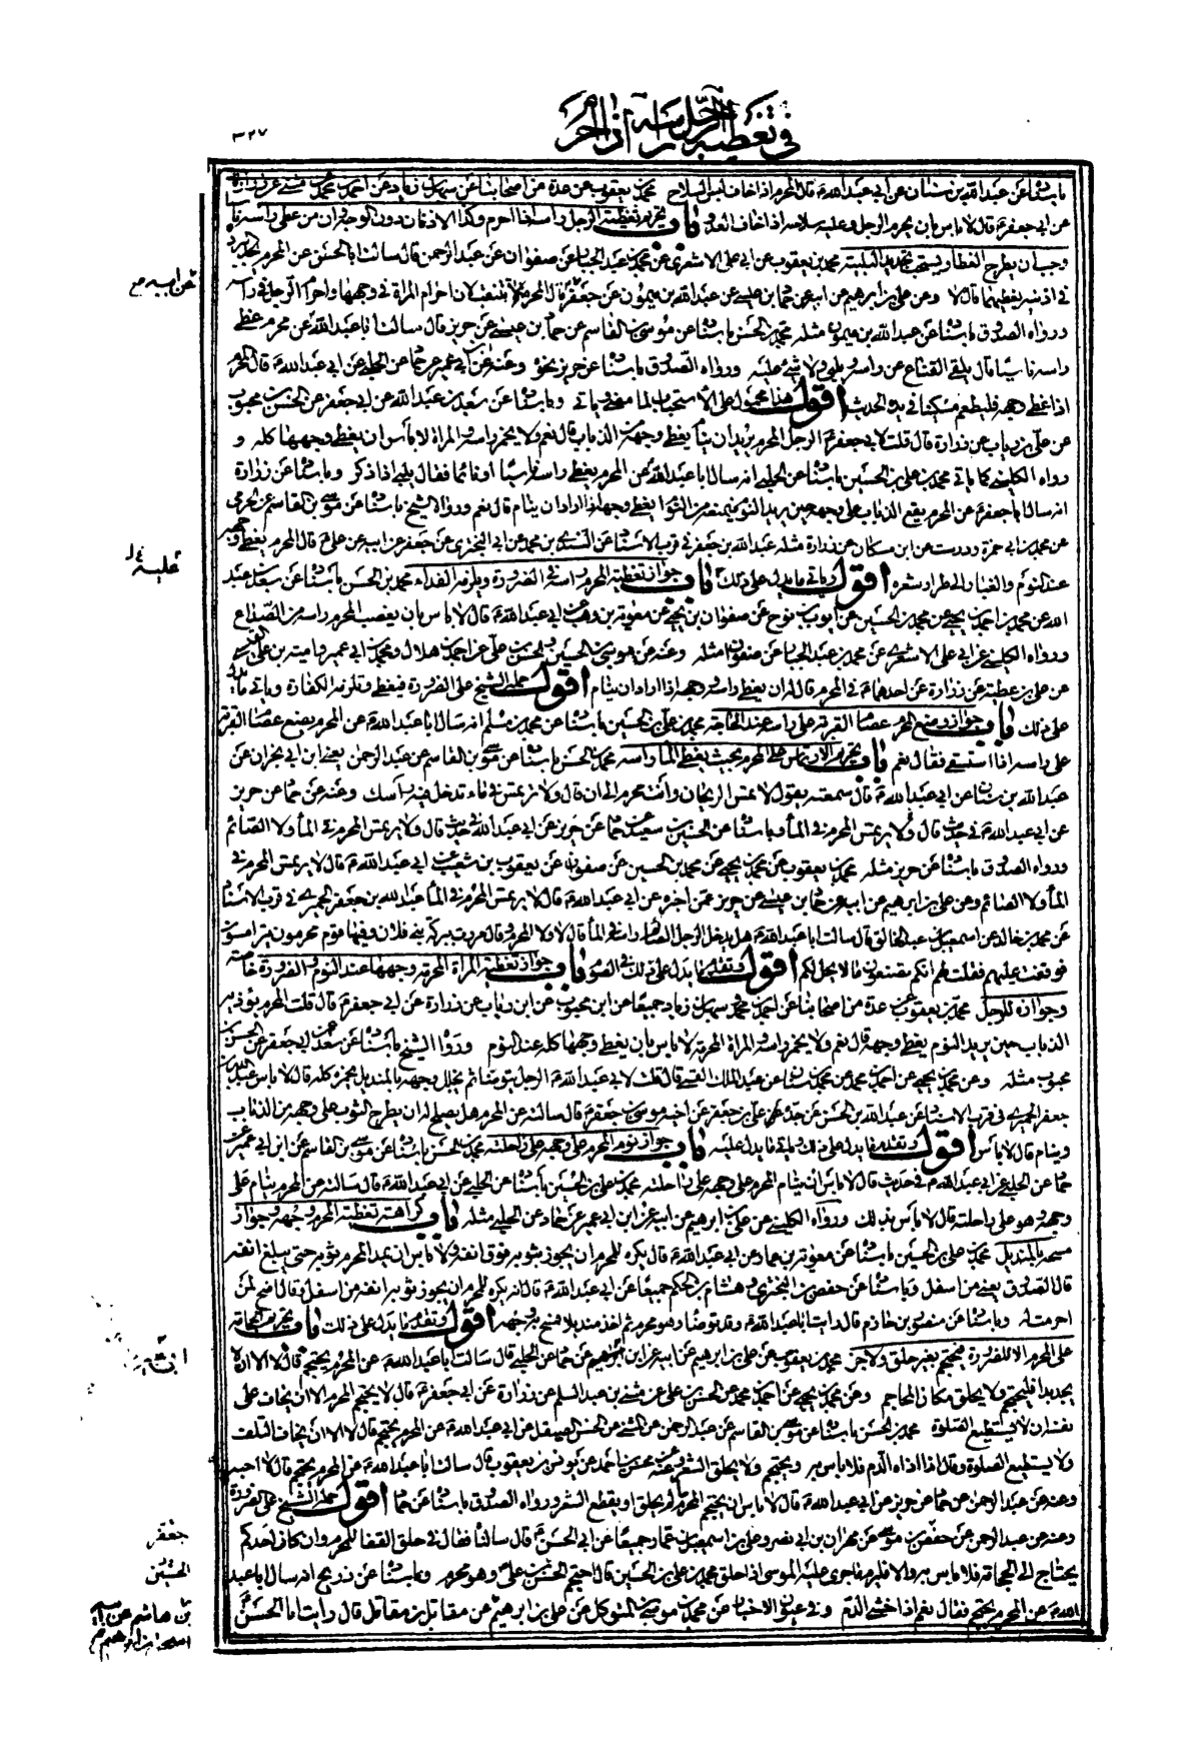 في تغطية الرجل رأسه اذا احرم
٣٢٧
باسناده عن عبدالله بن سنان عن ابي عبدالله ع قال المحرم اذا خاف لبس السلاح محمد بن يعقوب عن عدة من اصحابنا عن سهل بن زياد عن احمد بن محمد عن مثنى عن زرارة
عن ابي جعفر ع قال لا باس بان يحرم الرجل وعليه سلاحه اذا خاف العدو باب تحريم تغطية الرجل راسه اذا احرم وكذا الاذنان دون الوجه وان من غطى راسه ناسيا
وجب ان يطرح الغطاء ويستحب تجديد التلبية محمد بن يعقوب عن ابي علي الاشعري عن محمد بن عبد الجبار عن صفوان عن عبد الرحمن قال سالت ابا الحسن عن المحرم يجد البرد
في اذنيه يغطيهما قال لا وعن علي بن ابراهيم عن ابيه عن حماد بن عيسى عن عبدالله بن ميمون عن جعفر ع قال المحرمة لا تتنقب لان احرام المراة في وجهها واحرام الرجل في راسه
ورواه الصدوق باسناده عن عبدالله بن ميمون مثله محمد بن الحسن باسناده عن موسى بن القاسم عن حماد بن عيسى عن حريز قال سالت ابا عبدالله ع عن محرم غطى
راسه ناسيا قال يلقي القناع عن راسه ويلبي ولا شئ عليه ورواه الصدوق باسناده عن حريز نحوه وعنه عن ابن ابي عمير عن حماد عن الحلبي عن ابي عبدالله ع قال المحرم
اذا غطى وجهه فليطعم مسكينا في يده الحديث اقول هذا محمول على الاستحباب لما مضى ويأتي وباسناده عن سعد بن عبدالله عن ابي جعفر عن الحسن بن محبوب
عن علي بن رياب عن زرارة قال قلت لابي جعفر ع الرجل المحرم يريد ان ينام يغطي وجهه من الذباب قال نعم ولا يخمر راسه والمراة لا باس ان يغطي وجهها كله و
رواه الكليني كما ياتي محمد بن علي بن الحسين باسناده عن الحلبي انه سال ابا عبدالله ع عن المحرم يغطي راسه ناسيا او نائما فقال يلبي اذا ذكر وباسناده عن زرارة
انه سال ابا جعفر ع عن المحرم يقع الذباب على وجهه حين يريد النوم فيمنعه من النوم ايغطي وجهه اذا اراد ان ينام قال نعم ورواه الشيخ باسناده عن موسى بن القاسم عن الجرمي
عن محمد بن ابي حمزة ودرست عن ابن مسكان عن زرارة مثله عبدالله بن جعفر في قرب الاسناد عن السندي بن محمد عن ابي البختري عن جعفر عن ابيه عن علي ع قال المحرم يغطي وجهه
عند النوم والغبار الى طرار شعره اقول وياتي ما يدل على ذلك باب جواز تغطية المحرم راسه في الضرورة ويلزمه الفداء محمد بن الحسن باسناده عن سعد بن عبد
الله عن محمد بن احمد بن يحيى عن محمد بن الحسين عن ايوب بن نوح عن صفوان بن يحيى عن معوية بن وهب عن ابي عبدالله ع قال لا باس بان يعصب المحرم راسه من الصداع
ورواه الكليني عن ابي علي الاشعري عن محمد بن عبد الجبار عن صفوان مثله وعنه عن موسى بن الحسن
عن علي بن عطية عن زرارة عن احدهما ع في المحرم قال له ان يغطي راسه ووجهه اذا اراد ان ينام اقول حمله الشيخ على الضرورة فيغطي وتلزمه الكفارة وياتي ما يدل
على ذلك باب جواز وضع المحرم عصام القربة على راسه عند الحاجة محمد بن علي بن الحسين باسناده عن محمد بن مسلم انه سال ابا عبدالله ع عن المحرم يضع عصام القربة
على راسه اذا استسقى فقال نعم باب تحريم الارتماس على المحرم بحيث يغطي الماء راسه محمد بن الحسن باسناده عن موسى بن القاسم عن عبد الرحمن يعني ابن ابي نجران عن
عبدالله بن سنان عن ابي عبدالله ع قال سمعته يقول لا تمس الريحان وانت محرم الى ان قال ولا ترتمس في ماء تدخل فيه راسك وعنه عن حماد عن حريز
عن ابي عبدالله ع في حديث قال ولا يرتمس المحرم في الماء وباسناده عن الحسين بن سعيد عن حماد عن حريز عن ابي عبدالله ع في حديث قال ولا يرتمس المحرم في الماء ولا الصائم
ورواه الصدوق باسناده عن حريز مثله محمد بن يعقوب عن محمد بن يحيى عن محمد بن الحسين عن صفوان عن يعقوب بن شعيب عن ابي عبدالله ع قال لا يرتمس المحرم في
الماء ولا الصائم وعن علي بن ابراهيم عن ابيه عن حماد بن عيسى عن حريز عمن اخبره عن ابي عبدالله ع قال لا يرتمس المحرم في الماء عبدالله بن جعفر الحميري في قرب الاسناد
عن محمد بن خالد عن اسمعيل بن عبد الخالق قال سالت ابا عبدالله ع هل يدخل الرجل الصائم راسه في الماء قال لا ولا المحرم وقال مررت ببركة بني فلان وفيها قوم محرمون يترامسون
فوقفت عليهم فقلت لهم انكم تصنعون ما لا يحل لكم اقول وتقدم ما يدل على ذلك في الصوم باب جواز تغطية المراة المحرمة وجهها عند النوم والضرورة خاصة
وجوازه للرجل محمد بن يعقوب عن عدة من اصحابنا عن احمد بن محمد وسهل بن زياد جميعا عن ابن محبوب عن ابن رياب عن زرارة عن ابي جعفر ع قال قلت المحرم يؤذيه
الذباب حين يريد النوم يغطي وجهه قال نعم ولا يخمر راسه والمراة المحرمة لا باس بان يغطي وجهها كله عند النوم ورواه الشيخ باسناده عن سعد عن ابي جعفر عن الحسن بن
محبوب مثله وعن محمد بن يحيى عن احمد بن محمد عن محمد بن سنان عن عبد الملك القمي قال قلت لابي عبدالله ع الرجل يتوضأ ثم يجلل وجهه بالمنديل يخمره كله قال لا باس عبدالله بن
جعفر الحميري في قرب الاسناد عن عبدالله بن الحسن عن جده علي بن جعفر عن اخيه موسى بن جعفر ع قال سالته عن المحرم هل يصلح له ان يطرح الثوب على وجهه من الذباب
وينام قال لا باس اقول وتقدم ما يدل على ذلك وياتي ما يدل عليه باب جواز نوم المحرم على وجهه على راحلته محمد بن الحسن باسناده عن موسى بن القاسم عن ابن ابي عمير عن
حماد عن الحلبي عن ابي عبدالله ع في حديث قال لا باس ان ينام المحرم على وجهه على راحلته محمد بن علي بن الحسين باسناده عن الحلبي عن ابي عبدالله ع قال سالته عن المحرم ينام على
وجهه وهو على راحلته قال لا باس بذلك ورواه الكليني عن علي بن ابراهيم عن ابيه عن ابن ابي عمير عن حماد عن الحلبي مثله باب كراهة تغطية المحرم وجهه وجواز
مسحه بالمنديل محمد بن علي بن الحسين باسناده عن معوية بن عمار عن ابي عبدالله ع قال يكره للمحرم ان يجوز بثوبه فوق انفه ولا باس ان يمد المحرم ثوبه حتى يبلغ انفه
قال الصدوق يعني من اسفل وباسناده عن حفص بن البختري وهشام بن الحكم جميعا عن ابي عبدالله ع قال انه يكره للمحرم ان يجوز ثوبه انفه من اسفل وقال اضح لمن
احرمت له وباسناده عن منصور بن حازم قال رايت ابا عبدالله ع وقد توضا وهو محرم ثم اخذ منديلا فمسح به وجهه اقول وتقدم ما يدل على ذلك باب تحريم الحجامة
على المحرم الا للضرورة فيحتجم بغير حلق ولا جز محمد بن يعقوب عن علي بن ابراهيم عن ابيه عن ابن ابي عمير عن حماد عن الحلبي قال سالت ابا عبدالله ع عن المحرم يحتجم قال لا الا ان لا
يجد بدا فليحتجم ولا يحلق مكان المحاجم وعن محمد بن يحيى عن احمد بن محمد عن الحسن بن علي عن مثنى بن عبد السلم عن زرارة عن ابي جعفر ع قال لا يحتجم المحرم الا ان يخاف على
نفسه ان لا يستطيع الصلوة محمد بن الحسن باسناده عن موسى بن القاسم عن عبد الرحمن عن مثنى عن الحسن الصيقل عن ابي عبدالله ع عن المحرم يحتجم قال لا الا ان يخاف التلف
ولا يستطيع الصلوة وقال اذا اذاه الدم فلا باس به ويحتجم ولا يحلق الشعر وعنه عن محسن بن احمد عن يونس بن يعقوب قال سالت ابا عبدالله ع عن المحرم يحتجم قال لا احبه
وعنه عن عبد الرحمن عن حماد عن حريز عن ابي عبدالله ع قال لا باس ان يحتجم المحرم ما لم يحلق او يقطع الشعر ورواه الصدوق باسناده عن حماد اقول حمله الشيخ على الضرورة
وعنه عن عبد الرحمن عن جعفر بن موسى عن مهران بن ابي نصر وعلي بن اسمعيل بن عمار جميعا عن ابي الحسن ع قال سالناه فقال في حلق القفا للمحرم وان كان احدكم
يحتاج الى الحجامة فلا باس به والا فليرم ما جرى عليه الموسى اذا حلق محمد بن علي بن الحسين قال احتجم الحسن بن علي وهو محرم وباسناده عن ذريح انه سال ابا عبد
الله ع عن المحرم يحتجم فقال نعم اذا خشي الدم وفي عيون الاخبار عن محمد بن موسى بن المتوكل عن علي بن ابراهيم عن مقاتل بن مقاتل قال رايت ابا الحسن
عن ابيه مع
عليه
جعفر
الحسين
بن هاشم عن ابيه